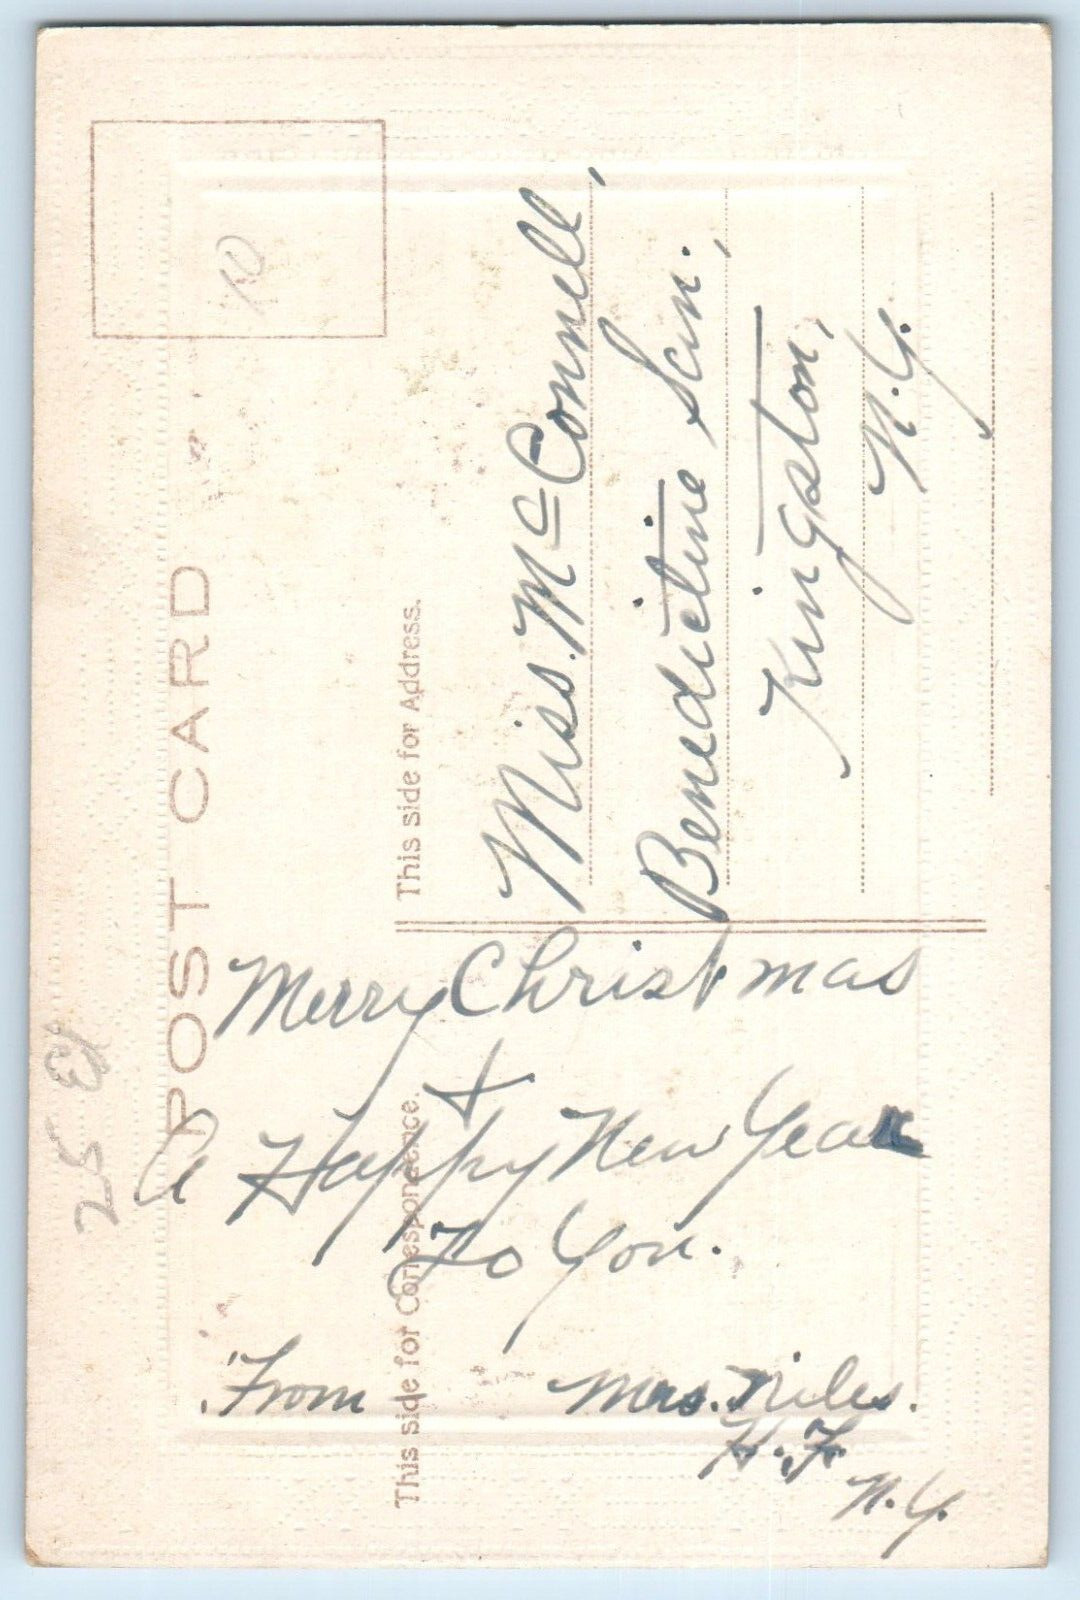 POST CARD
This side for Correspondence.
This side for Address.
10
Miss. McConnell,
Benedictine San.,
Kingston,
N.Y.
Merry Christmas
+
A Happy New Year
To You.
From Mrs. Niles.
H. F.
N.Y.